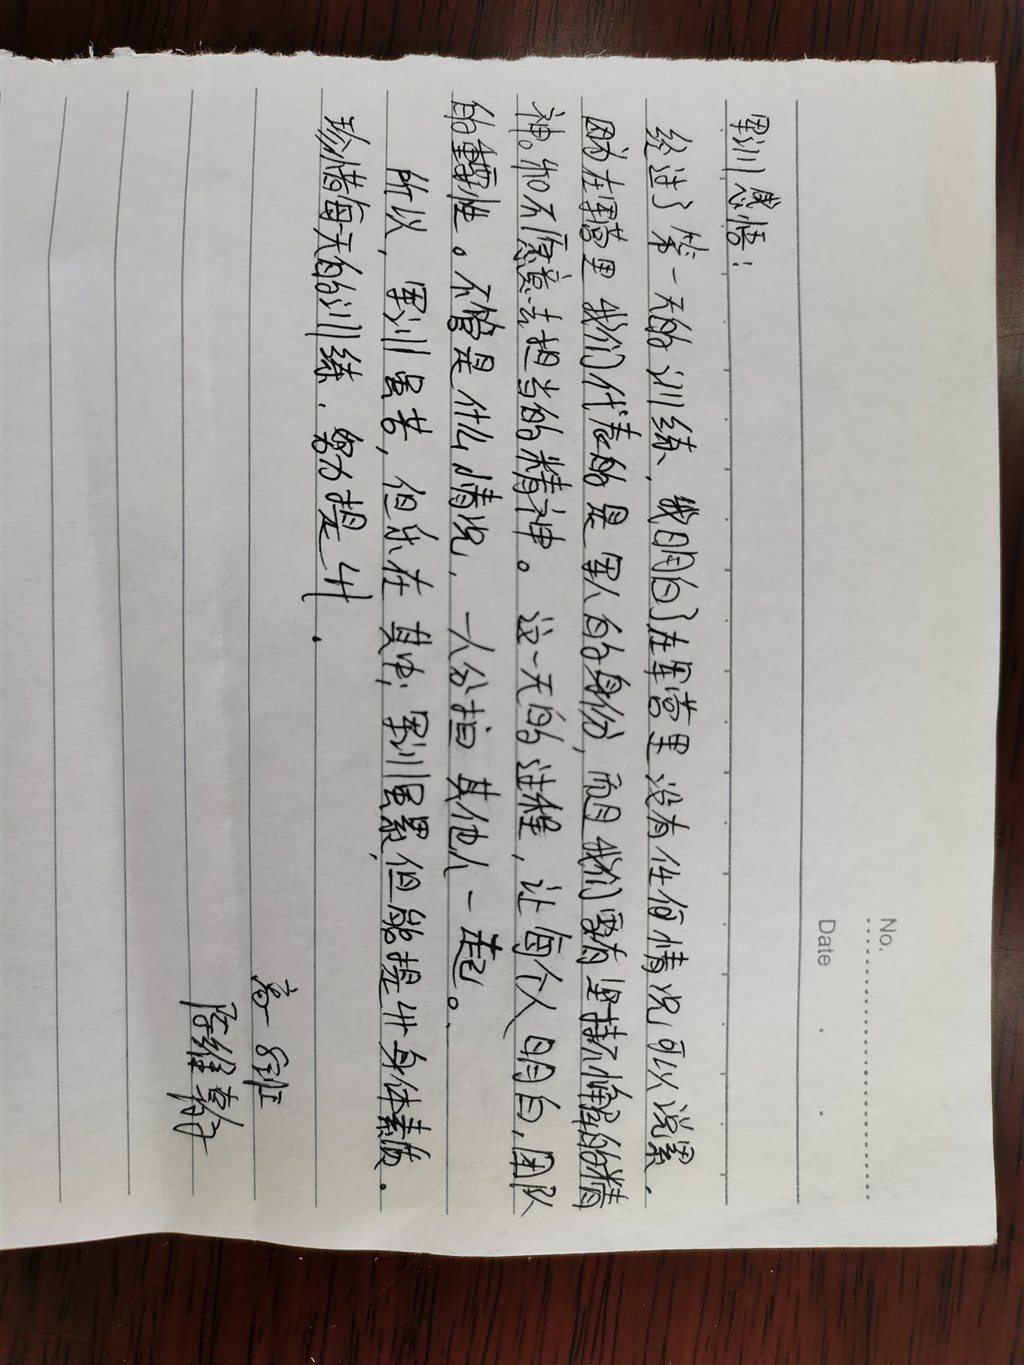 No.
Date
军训感悟：
经过了第一天的训练，我明白了在军营里没有任何情况可以说累，
因为在军营里我们代表的是军人的身份，而且我们要有坚持不懈的精
神。和不愿意去担当的精神。这一天的过程，让每个人明白，团队
的重要性。不管是什么情况，一人分担其他人一起。
所以，军训虽苦，但乐在其中，军训虽累，但能提升身体素质。
珍惜每天的训练，努力提升.
高一 8班
陈维